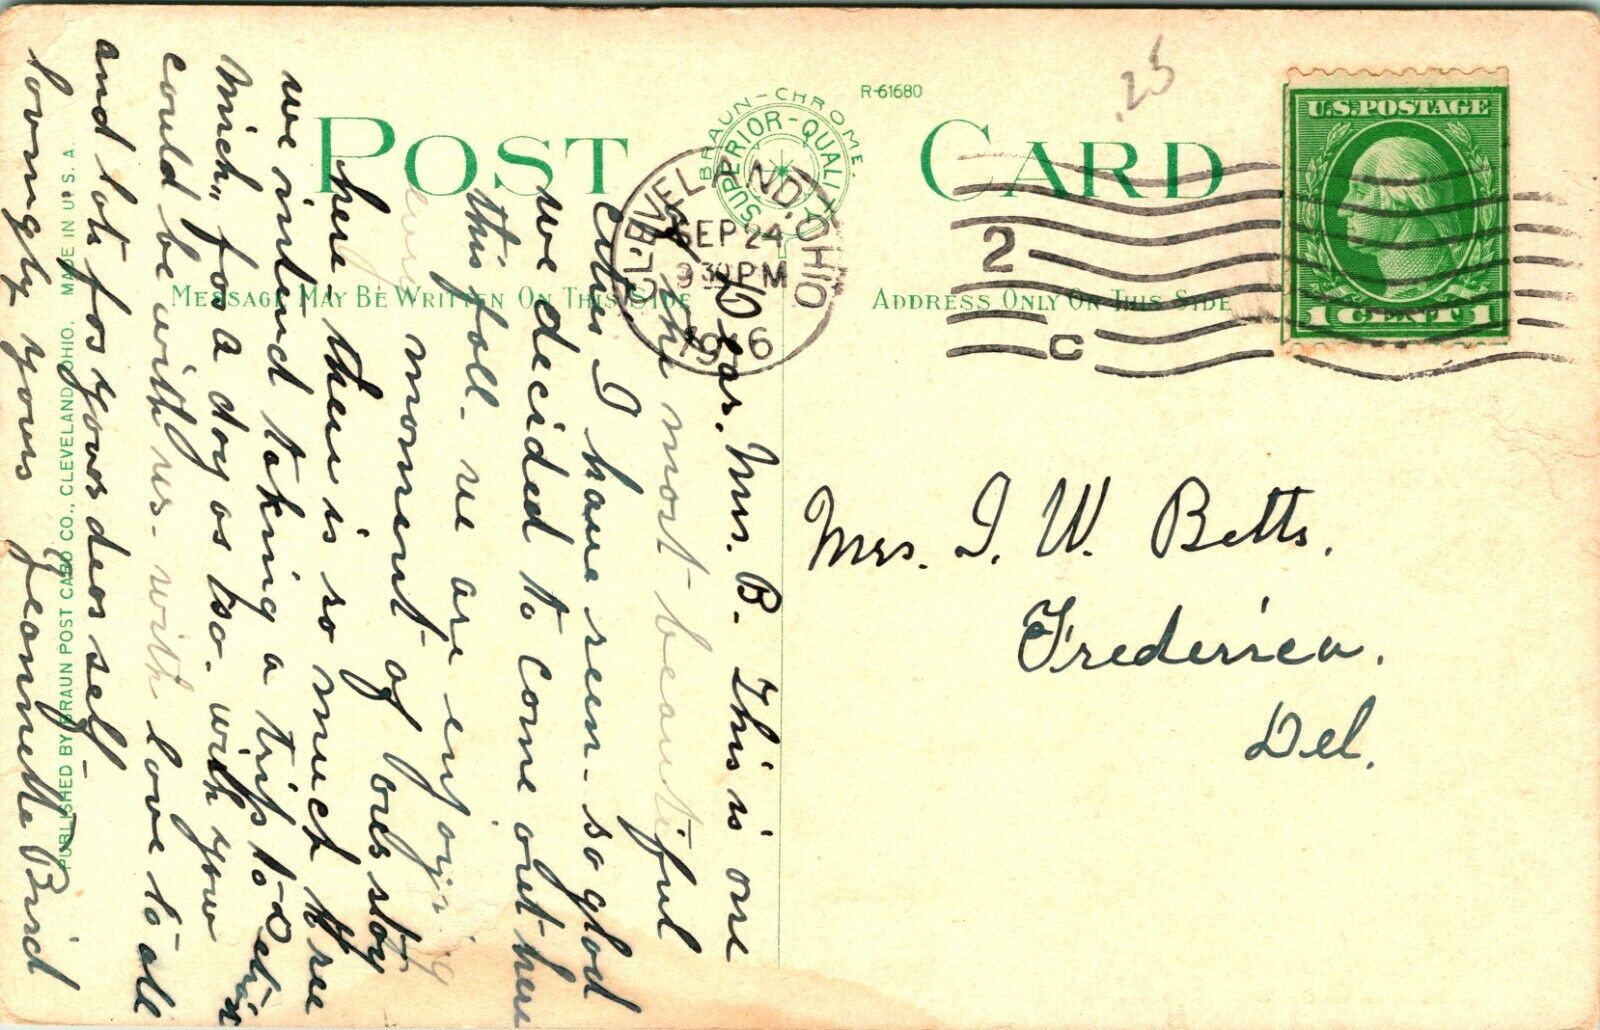 POST CARD
R-61680
BRAUN-CHROME.
SUPERIOR-QUALITY
.25
U.S. POSTAGE
1 CENT 1
CLEVELAND, OHIO
SEP 24
9 30 PM
1916
2
C
MESSAGE MAY BE WRITTEN ON THIS SIDE
ADDRESS ONLY ON THIS SIDE
Dear. Mrs. B. This is one
of the most beautiful
cities I have seen - so glad
we decided to come out here
this fall. we are enjoying
every moment of our stay
here - there is so much to see
we intend taking a trip to Detroit
Mich" for a day or two. wish you
could be with us - with love to all
and lots for your dear self -
lovingly yours Jeannette Bird
PUBLISHED BY BRAUN POST CARD CO., CLEVELAND, OHIO. MADE IN U. S. A.
Mrs. I. W. Betts.
Frederica.
Del.